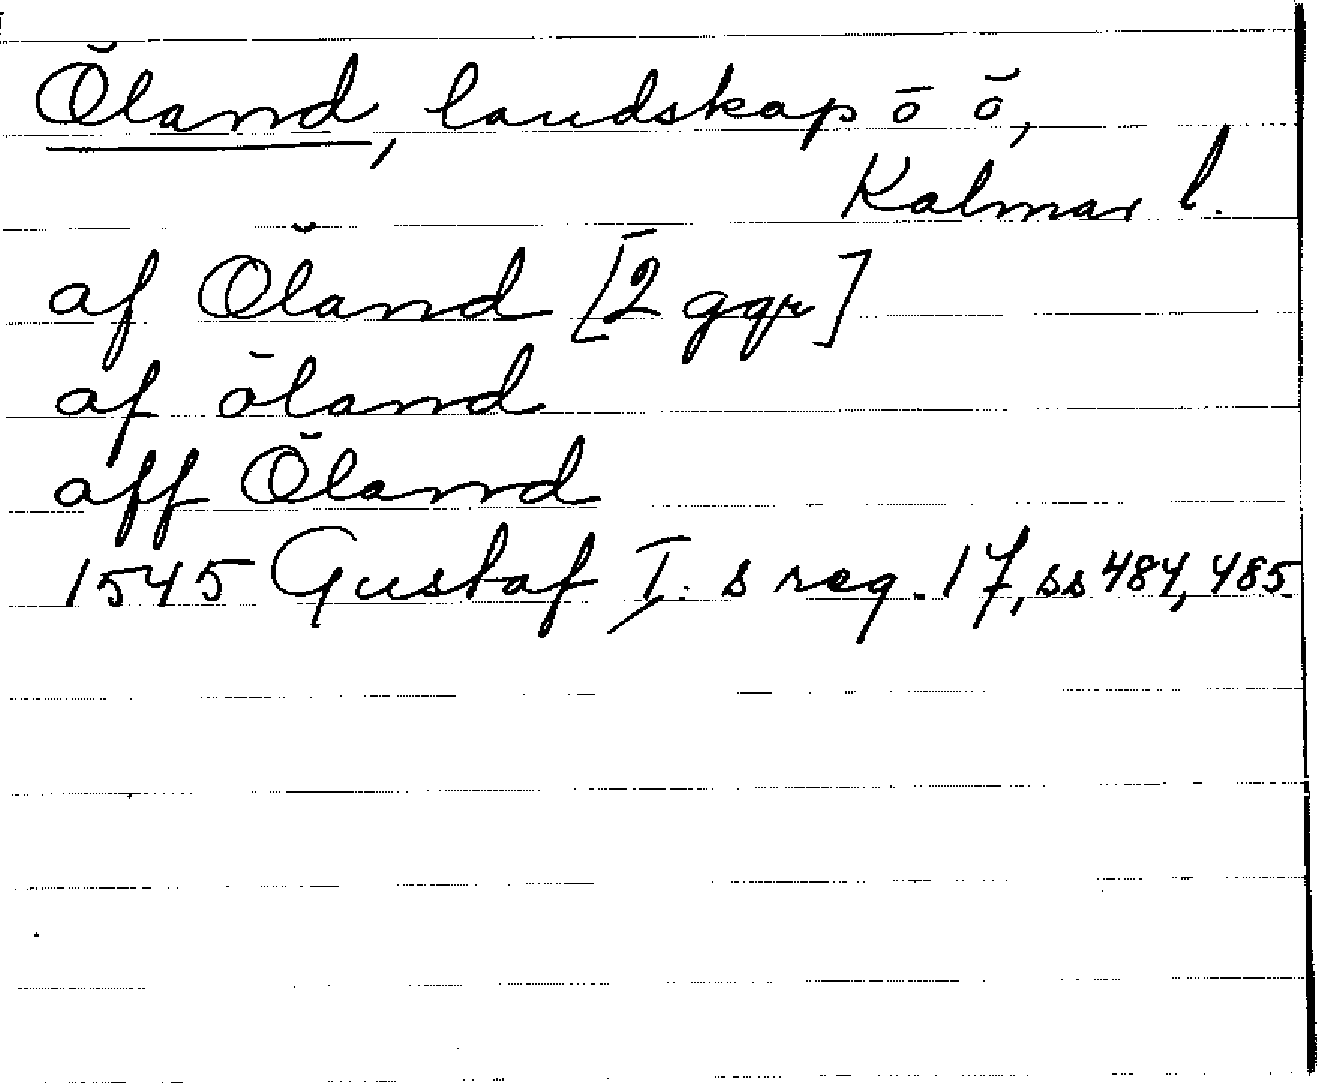 Öland, landskap o ö,
Kalmar l.
af Öland [2 ggr]
af öland
aff Öland
1545 Gustaf I:s reg. 17, ss 484, 485